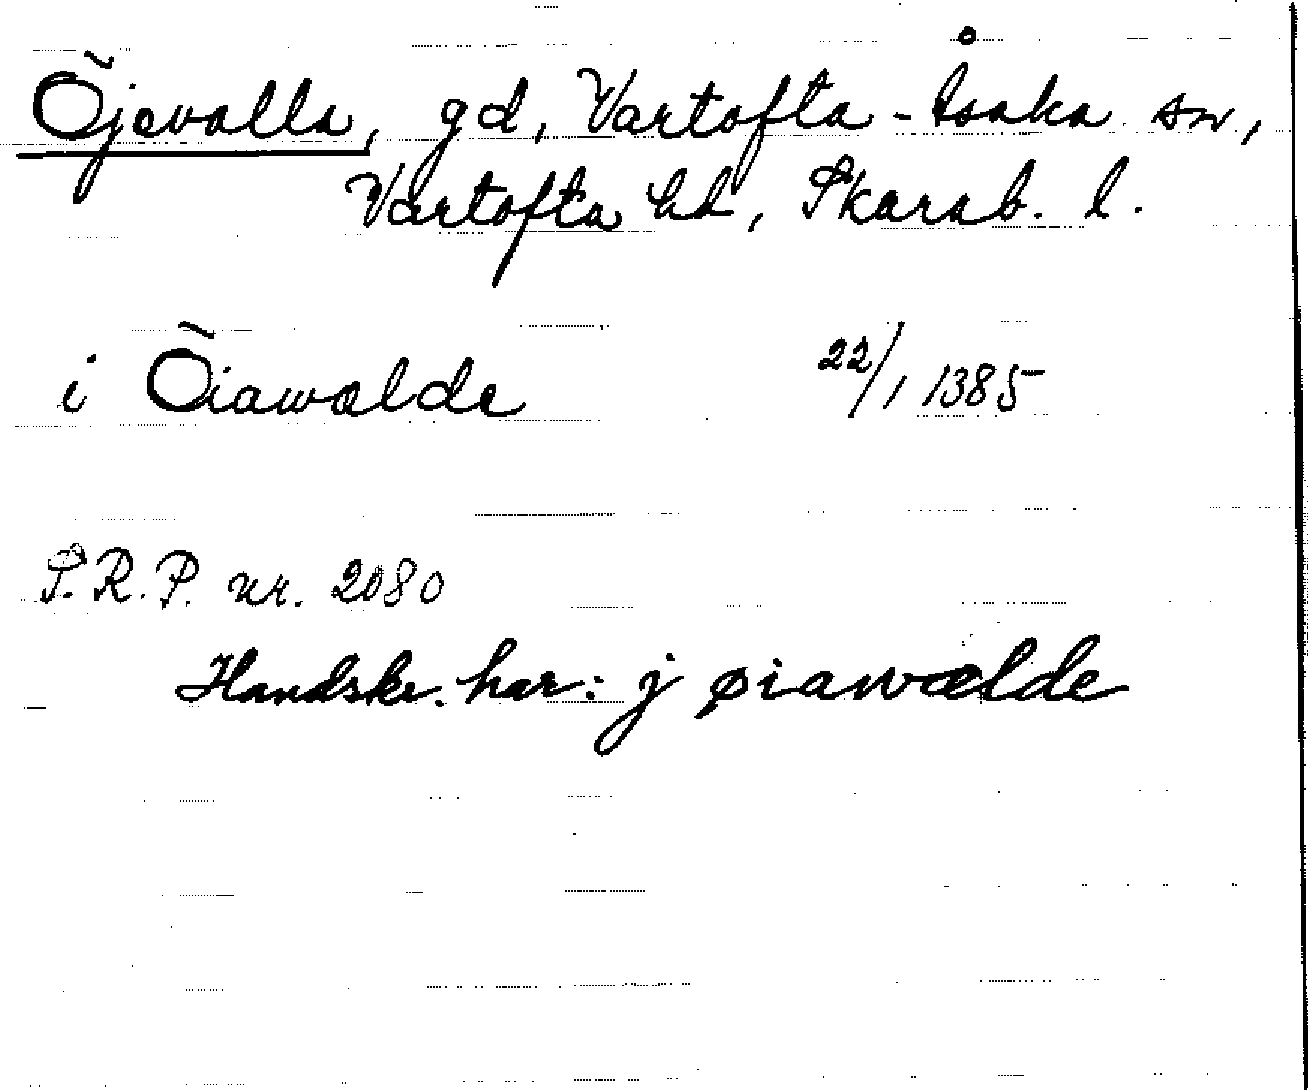 Öjevalla, gd, Vartofta-Åsaka sn,
Vartofta hd, Skarab. l.
i Öiawalde 22/1 1385
S.R.P. nr. 2080
Handskr. har: j øiawælde